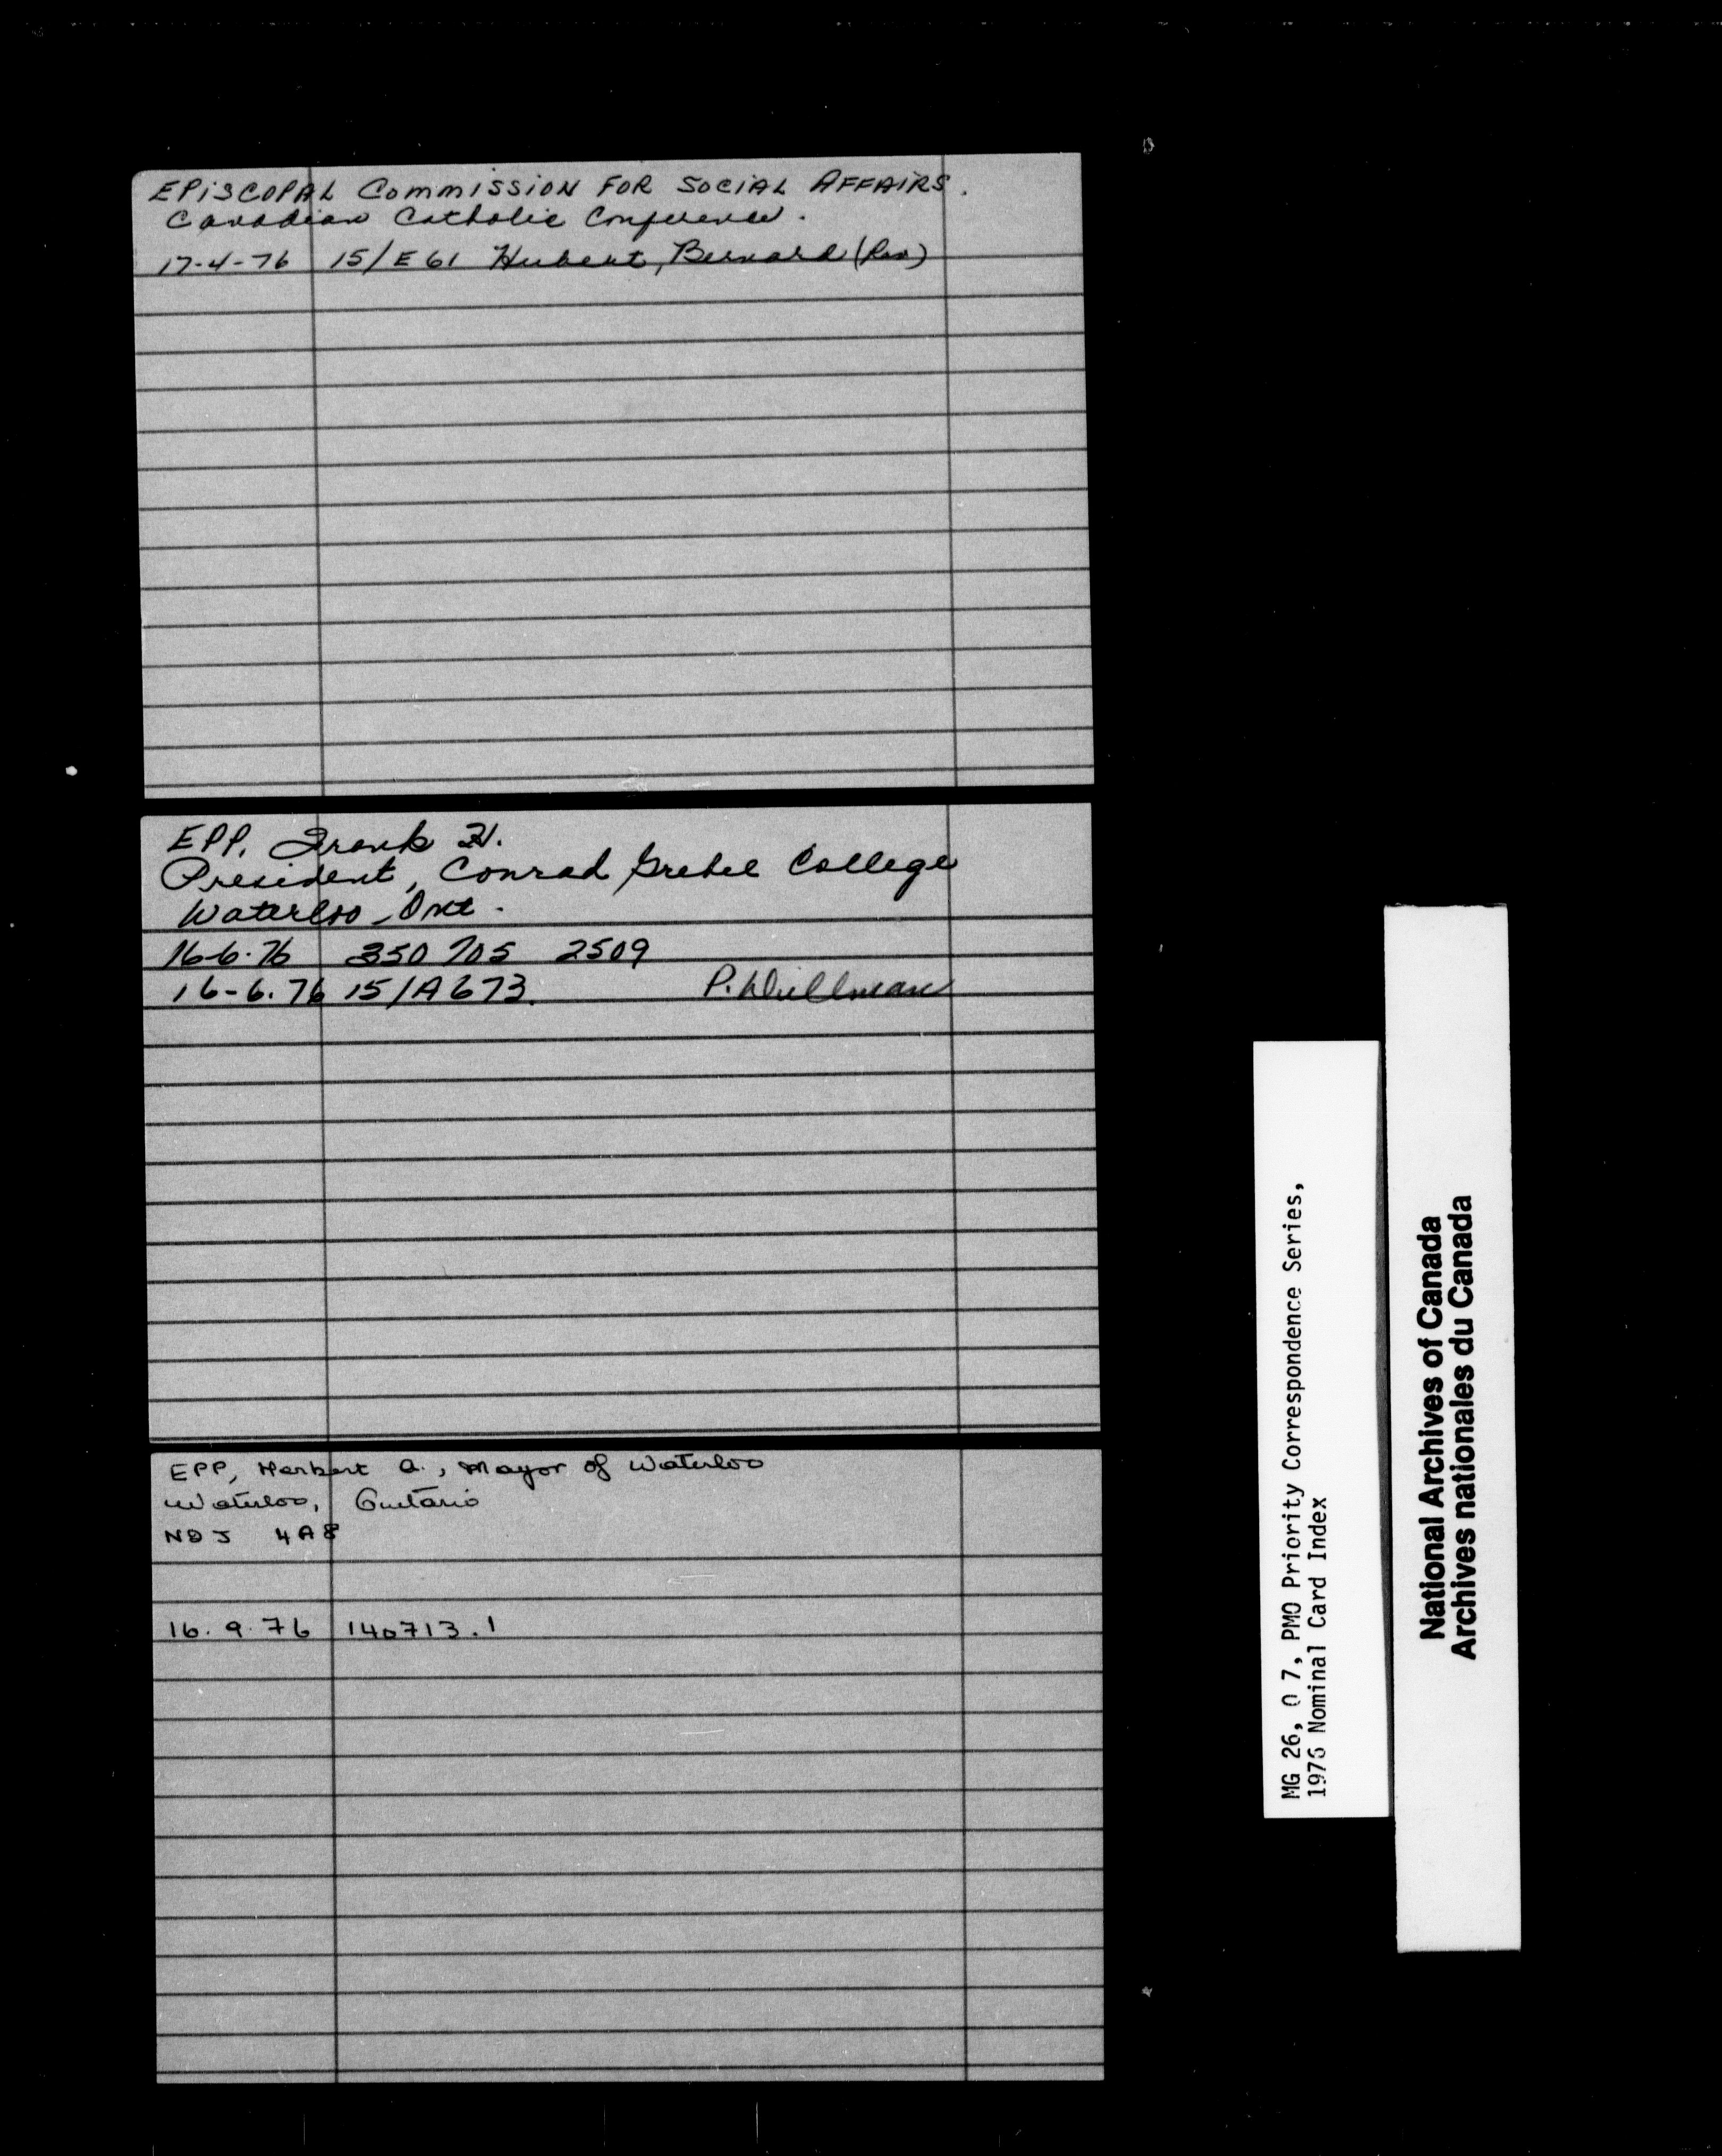 EPISCOPAL COMMISSION FOR SOCIAL AFFAIRS.
Canadian Catholic Conference.
17-4-76 15/E61 Hubert, Bernard (Rev)
EPP, Frank H.
President, Conrad Grebel College
Waterloo, Ont.
16-6-76 350 705 2509
16-6.76 15/A673. P.
EPP, Herbert A., Mayor of Waterloo
Waterloo, Ontario
4A8
16.9.76 140713.1
MG 26, O 7, PMO Priority Correspondence Series,
1976 Nominal Card Index
National Archives of Canada
Archives nationales du Canada